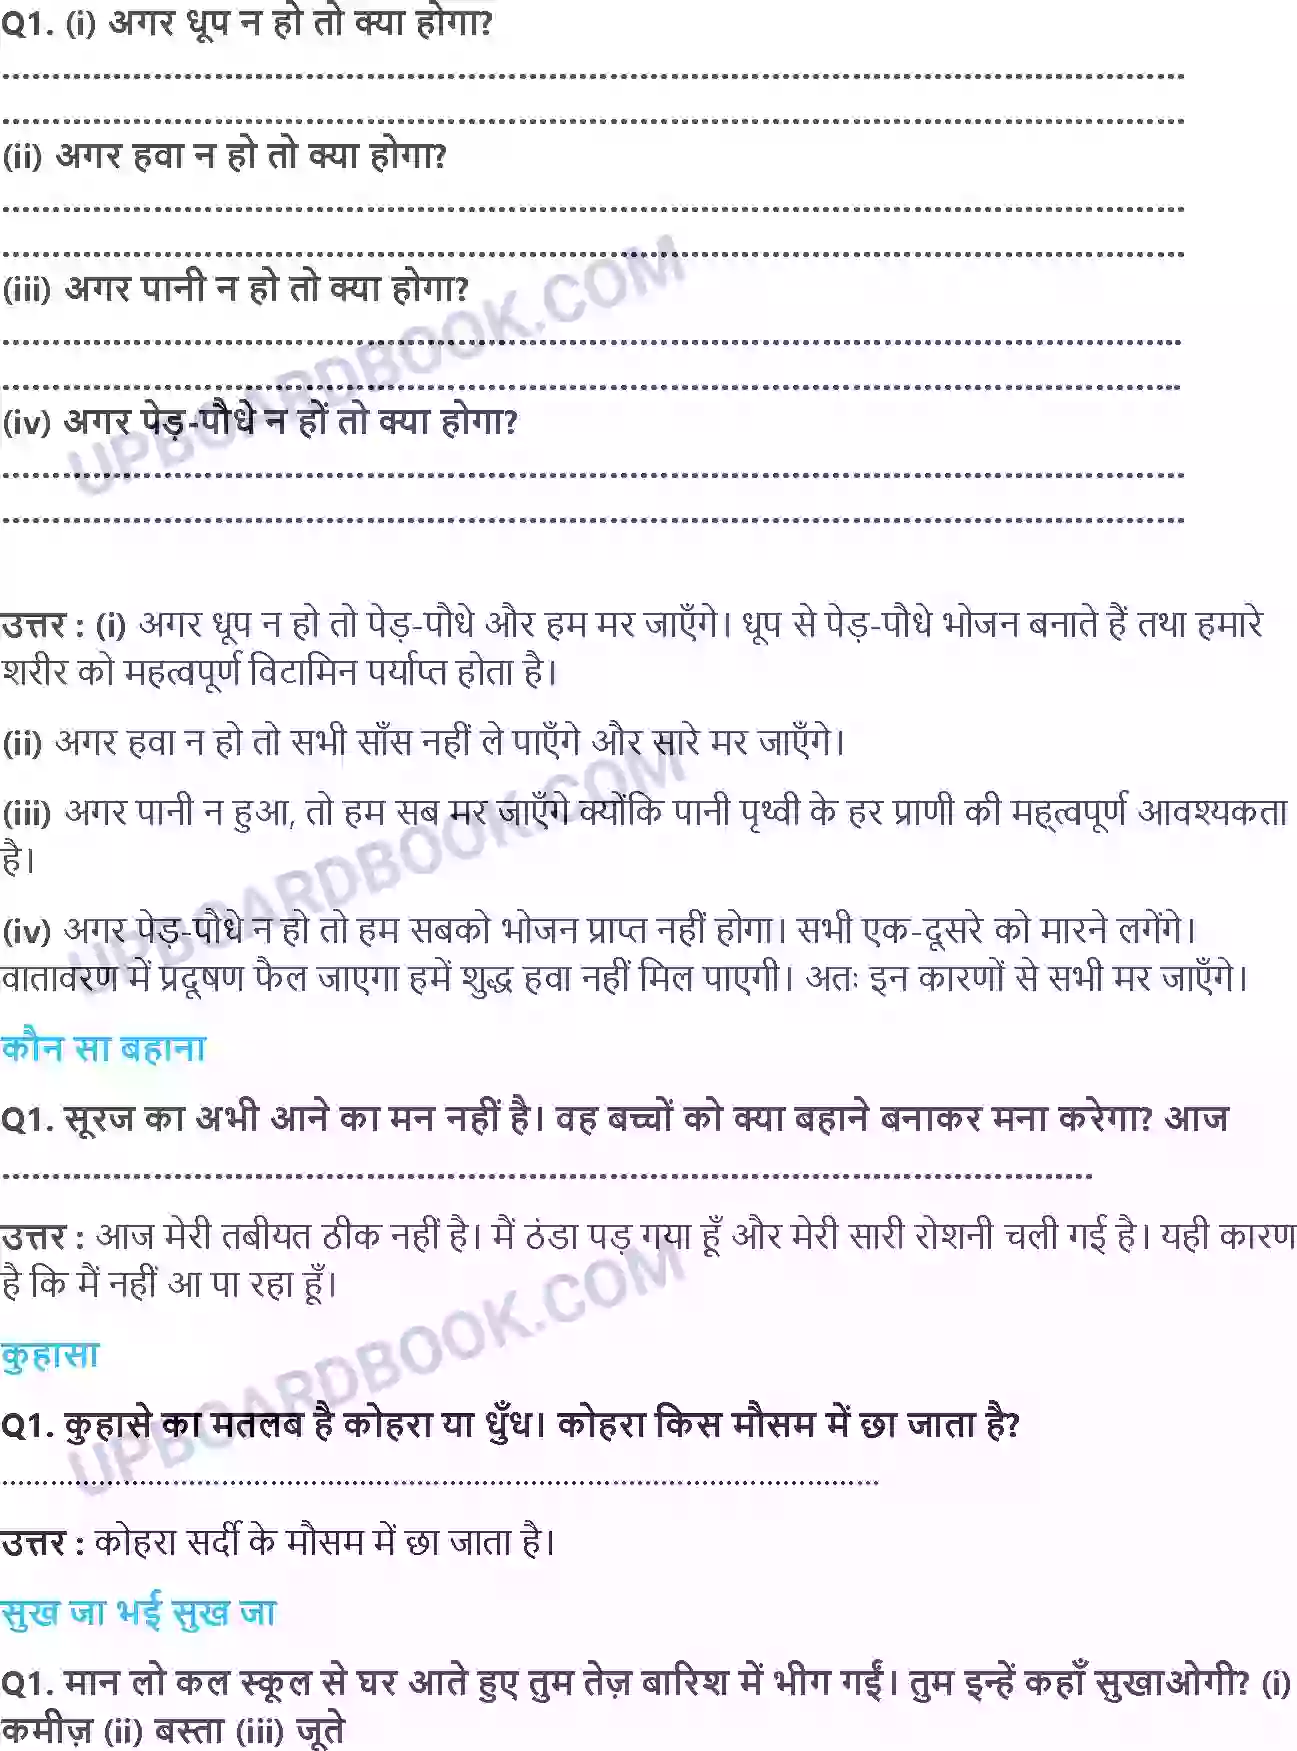 Q1. (i) अगर धूप न हो तो क्या होगा?
..............................................................................................................
..............................................................................................................
(ii) अगर हवा न हो तो क्या होगा?
..............................................................................................................
..............................................................................................................
(iii) अगर पानी न हो तो क्या होगा?
..............................................................................................................
..............................................................................................................
(iv) अगर पेड़-पौधे न हों तो क्या होगा?
..............................................................................................................
..............................................................................................................
उत्तर : (i) अगर धूप न हो तो पेड़-पौधे और हम मर जाएँगे। धूप से पेड़-पौधे भोजन बनाते हैं तथा हमारे
शरीर को महत्वपूर्ण विटामिन पर्याप्त होता है।
(ii) अगर हवा न हो तो सभी साँस नहीं ले पाएँगे और सारे मर जाएँगे।
(iii) अगर पानी न हुआ, तो हम सब मर जाएँगे क्योंकि पानी पृथ्वी के हर प्राणी की मह्त्वपूर्ण आवश्यकता
है।
(iv) अगर पेड़-पौधे न हो तो हम सबको भोजन प्राप्त नहीं होगा। सभी एक-दूसरे को मारने लगेंगे।
वातावरण में प्रदूषण फैल जाएगा हमें शुद्ध हवा नहीं मिल पाएगी। अतः इन कारणों से सभी मर जाएँगे।
कौन सा बहाना
Q1. सूरज का अभी आने का मन नहीं है। वह बच्चों को क्या बहाने बनाकर मना करेगा? आज
..............................................................................................................
उत्तर : आज मेरी तबीयत ठीक नहीं है। मैं ठंडा पड़ गया हूँ और मेरी सारी रोशनी चली गई है। यही कारण
है कि मैं नहीं आ पा रहा हूँ।
कुहासा
Q1. कुहासे का मतलब है कोहरा या धुँध। कोहरा किस मौसम में छा जाता है?
..............................................................................................................
उत्तर : कोहरा सर्दी के मौसम में छा जाता है।
सुख जा भई सुख जा
Q1. मान लो कल स्कूल से घर आते हुए तुम तेज़ बारिश में भीग गईं। तुम इन्हें कहाँ सुखाओगी? (i)
कमीज़ (ii) बस्ता (iii) जूते
UPBOARDBOOK.COM
UPBOARDBOOK.COM
UPBOARDBOOK.COM